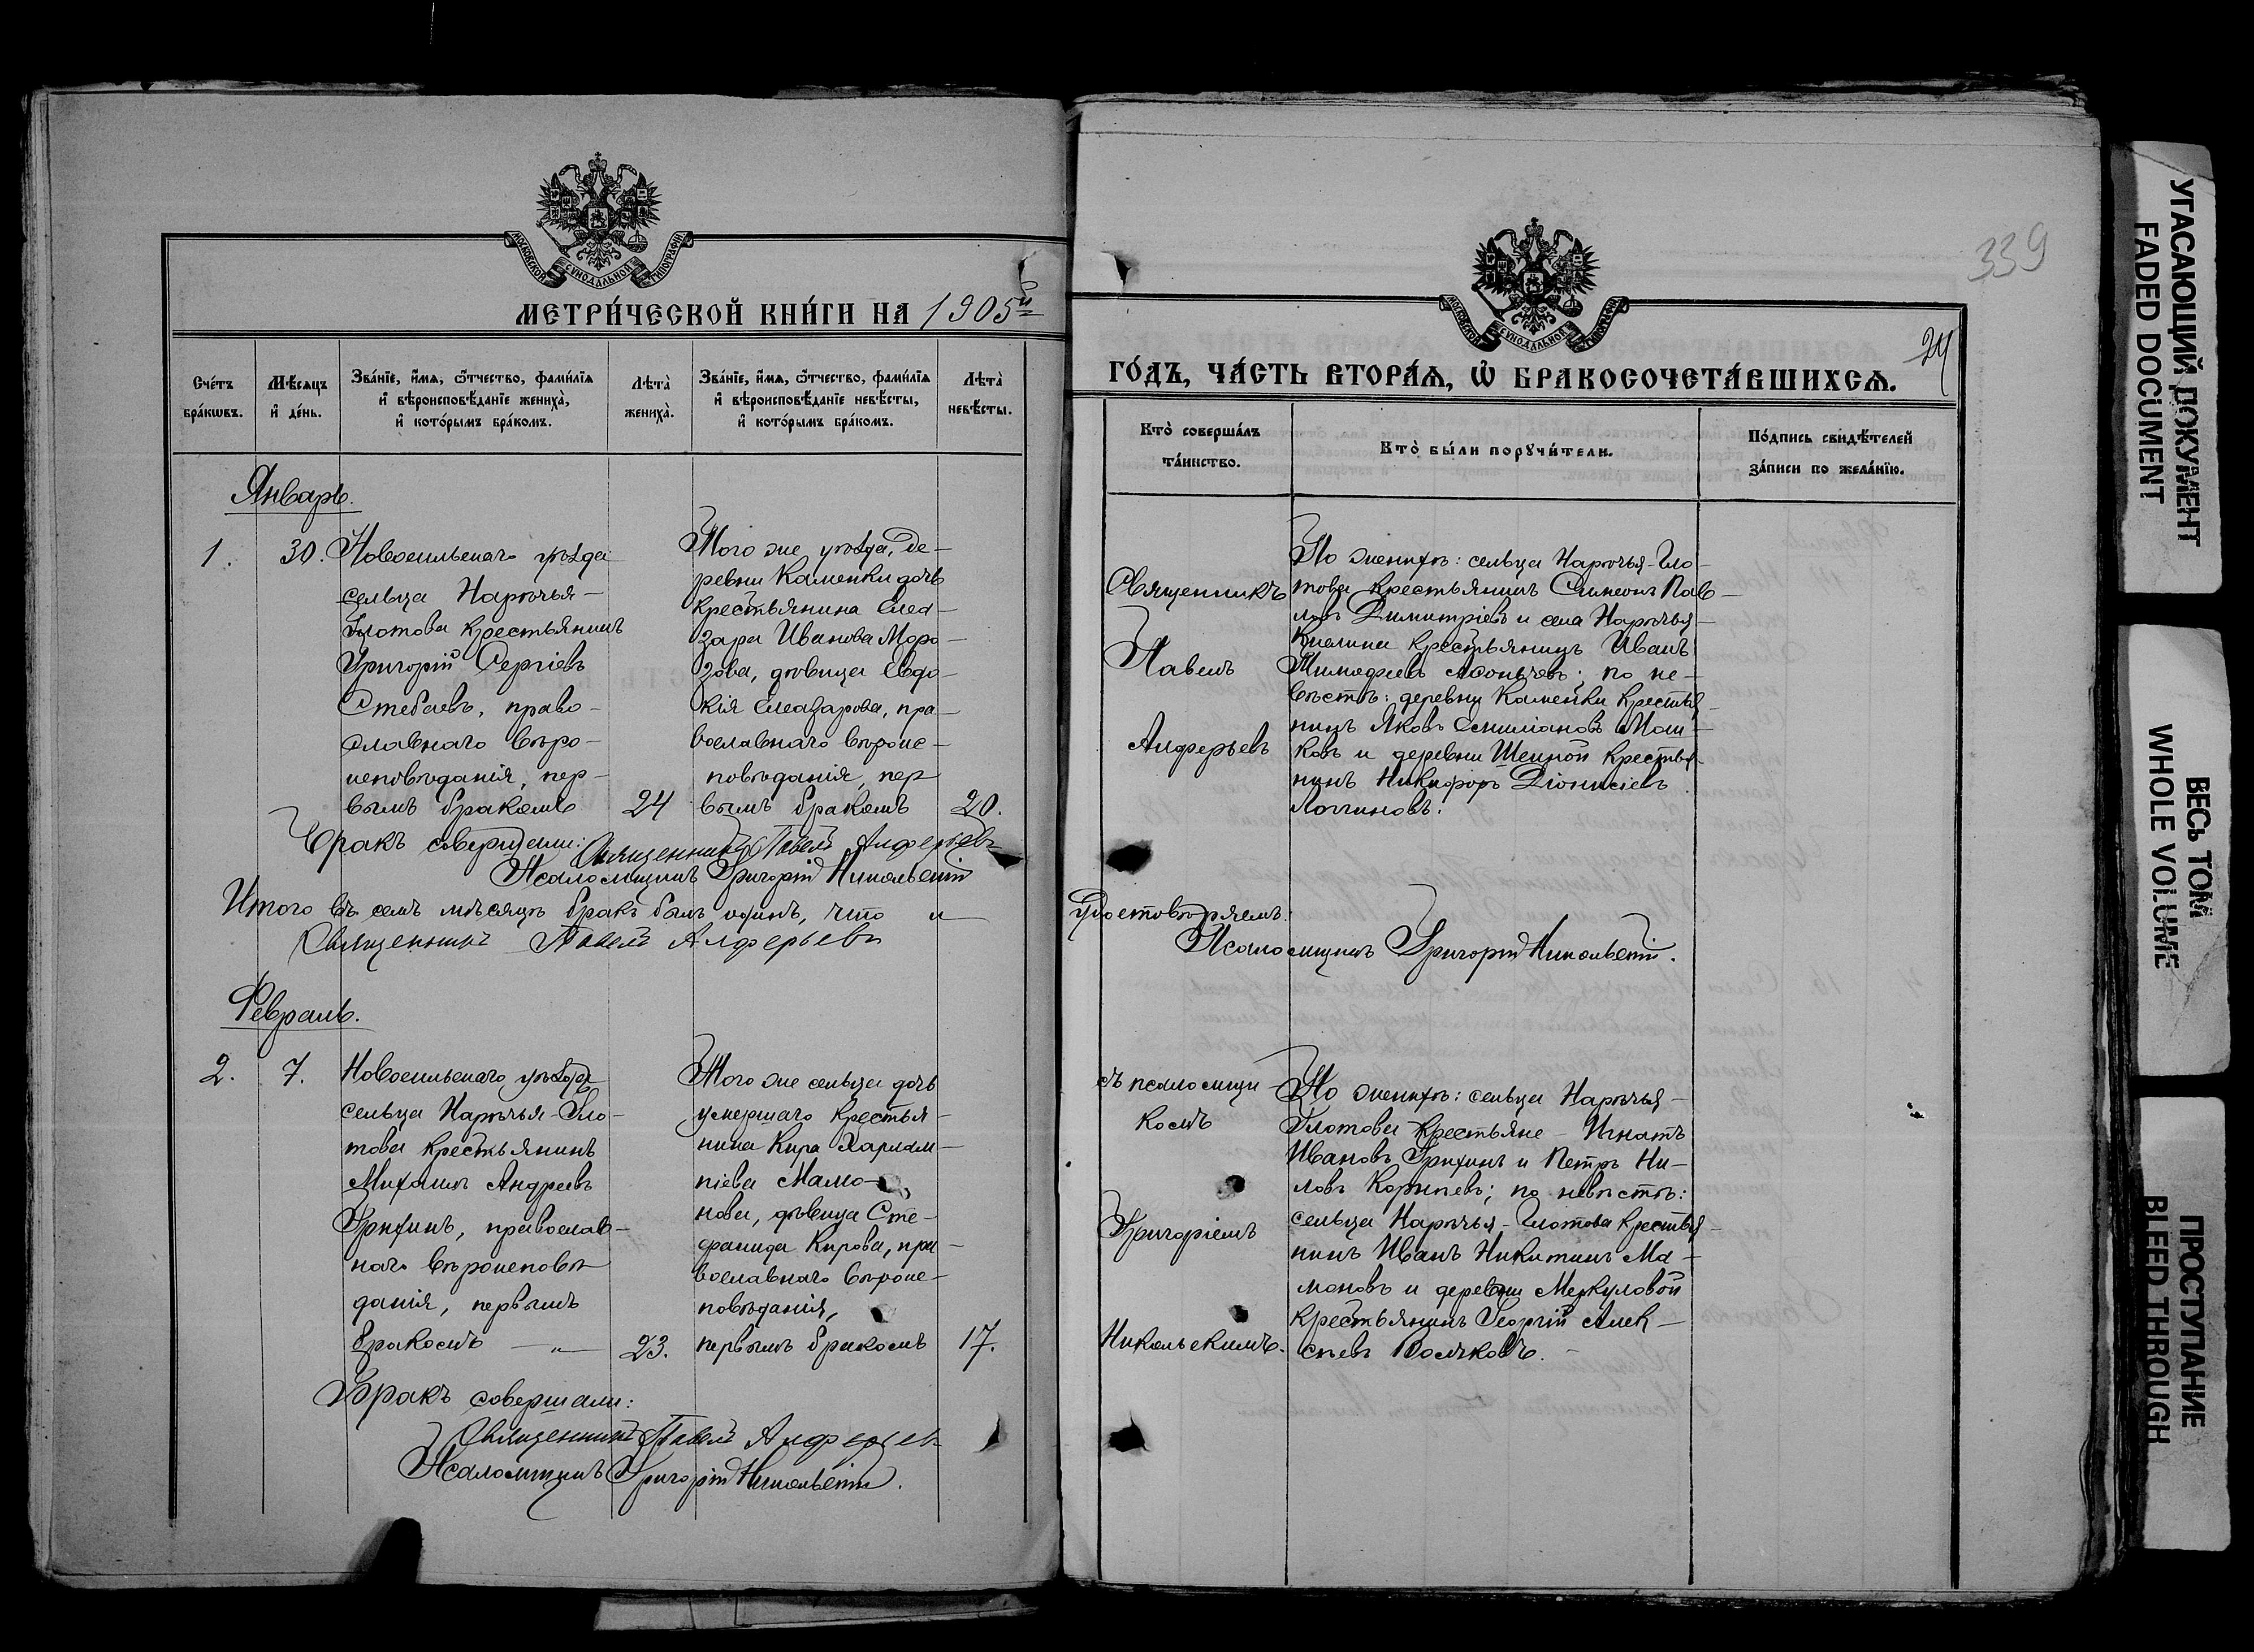 МОСКОВСКОЙ СУНОДАЛЬНОЙ ТИПОГРАФІИ
МЕТРИ́ЧЕСКОЙ КНИ́ГИ НА 1905й
Сче́тъ бра́кѡвъ.
Мѣ́сяцъ и҆ де́нь.
Зва́нїе, и҆́мѧ, ѻ҆́тчество, фами́лїѧ и҆ вѣроисповѣ́данїе жениха̀, и҆ кото́рымъ бра́комъ.
Лѣта̀ жениха̀.
Зва́нїе, и҆́мѧ, ѻ҆́тчество, фами́лїѧ и҆ вѣроисповѣ́данїе невѣ́сты, и҆ кото́рымъ бра́комъ.
Лѣта̀ невѣ́сты.
Январь.
1.
30.
Новосильскаго уѣзда
сельца Нарѣчья-
Глотова крестьянинъ
Григорій Сергіевъ
Стебаевъ, право-
славнаго вѣро-
исповѣданія, пер-
вымъ бракомъ
24
Того же уѣзда, де-
ревни Каменки дочь
крестьянина Елеа-
зара Иванова Моро-
зова, дѣвица Евдо-
кія Елеазарова, пра-
вославнаго вѣроис-
повѣданія, пер
вымъ бракомъ
20.
Бракъ совершали: Священникъ Павелъ Алферьевъ
Псаломщикъ Григорій Никольскій
Итого въ семъ мѣсяцѣ бракъ былъ одинъ, что и
Священникъ Павелъ Алферьевъ
Февраль.
2.
7.
Новосильскаго уѣзда
сельца Нарѣчья-Гло-
това крестьянинъ
Михаилъ Андреевъ
Грихинъ, православ-
наго вѣроисповѣ
данія, первымъ
бракомъ — „ —
23.
Того же сельца дочь
умершаго крестья-
нина Кира Харлам-
піева Мамо-
нова, дѣвица Сте-
фанида Кирова, пра-
вославнаго вѣроис-
повѣданія,
первымъ бракомъ
17.
Бракъ совершали:
Священникъ Павелъ Алферьевъ
Псаломщикъ Григорій Никольскій.
339
МОСКОВСКОЙ СУНОДАЛЬНОЙ ТИПОГРАФІИ
ГО́ДЪ, ЧА́СТЬ ВТОРА́Ѧ, Ѡ҆ БРАКОСОЧЕТА́ВШИХСѦ.
Кто̀ соверша́лъ та́инство.
Кто̀ бы́ли порꙋчи́тели.
По́дпись свидѣ́телей за́писи по жела́нїю.
Священникъ
Павелъ
Алферьевъ
По женихѣ: сельца Нарѣчья-Гло-
това крестьянинъ Симеонъ Пав-
ловъ Димитріевъ и села Нарѣчья-
крестьянинъ Иванъ
Тимофеевъ по не-
вѣстѣ: деревни Каменки крестья-
нинъ Яковъ Емиліановъ
ковъ и деревни крестья-
нинъ Никифоръ Діонисіевъ
Логгиновъ.
удостовѣряемъ:
Псаломщикъ Григорій Никольскій.
съ псаломщи-
комъ
Григоріемъ
Никольскимъ.
По женихѣ: сельца Нарѣчья-
Глотова крестьяне - Игнатъ
Ивановъ Грихинъ и Петръ Ни-
ловъ по невѣстѣ:
сельца Нарѣчья-Глотова крестья-
нинъ Иванъ Никитинъ Ма-
моновъ и деревни Меркуловой
крестьянинъ Георгій Алек-
сѣевъ Волчковъ.
УГАСАЮЩИЙ ДОКУМЕНТ
FADED DOCUMENT
ВЕСЬ ТОМ
WHOLE VOLUME
ПРОСТУПАНИЕ
BLEED THROUGH